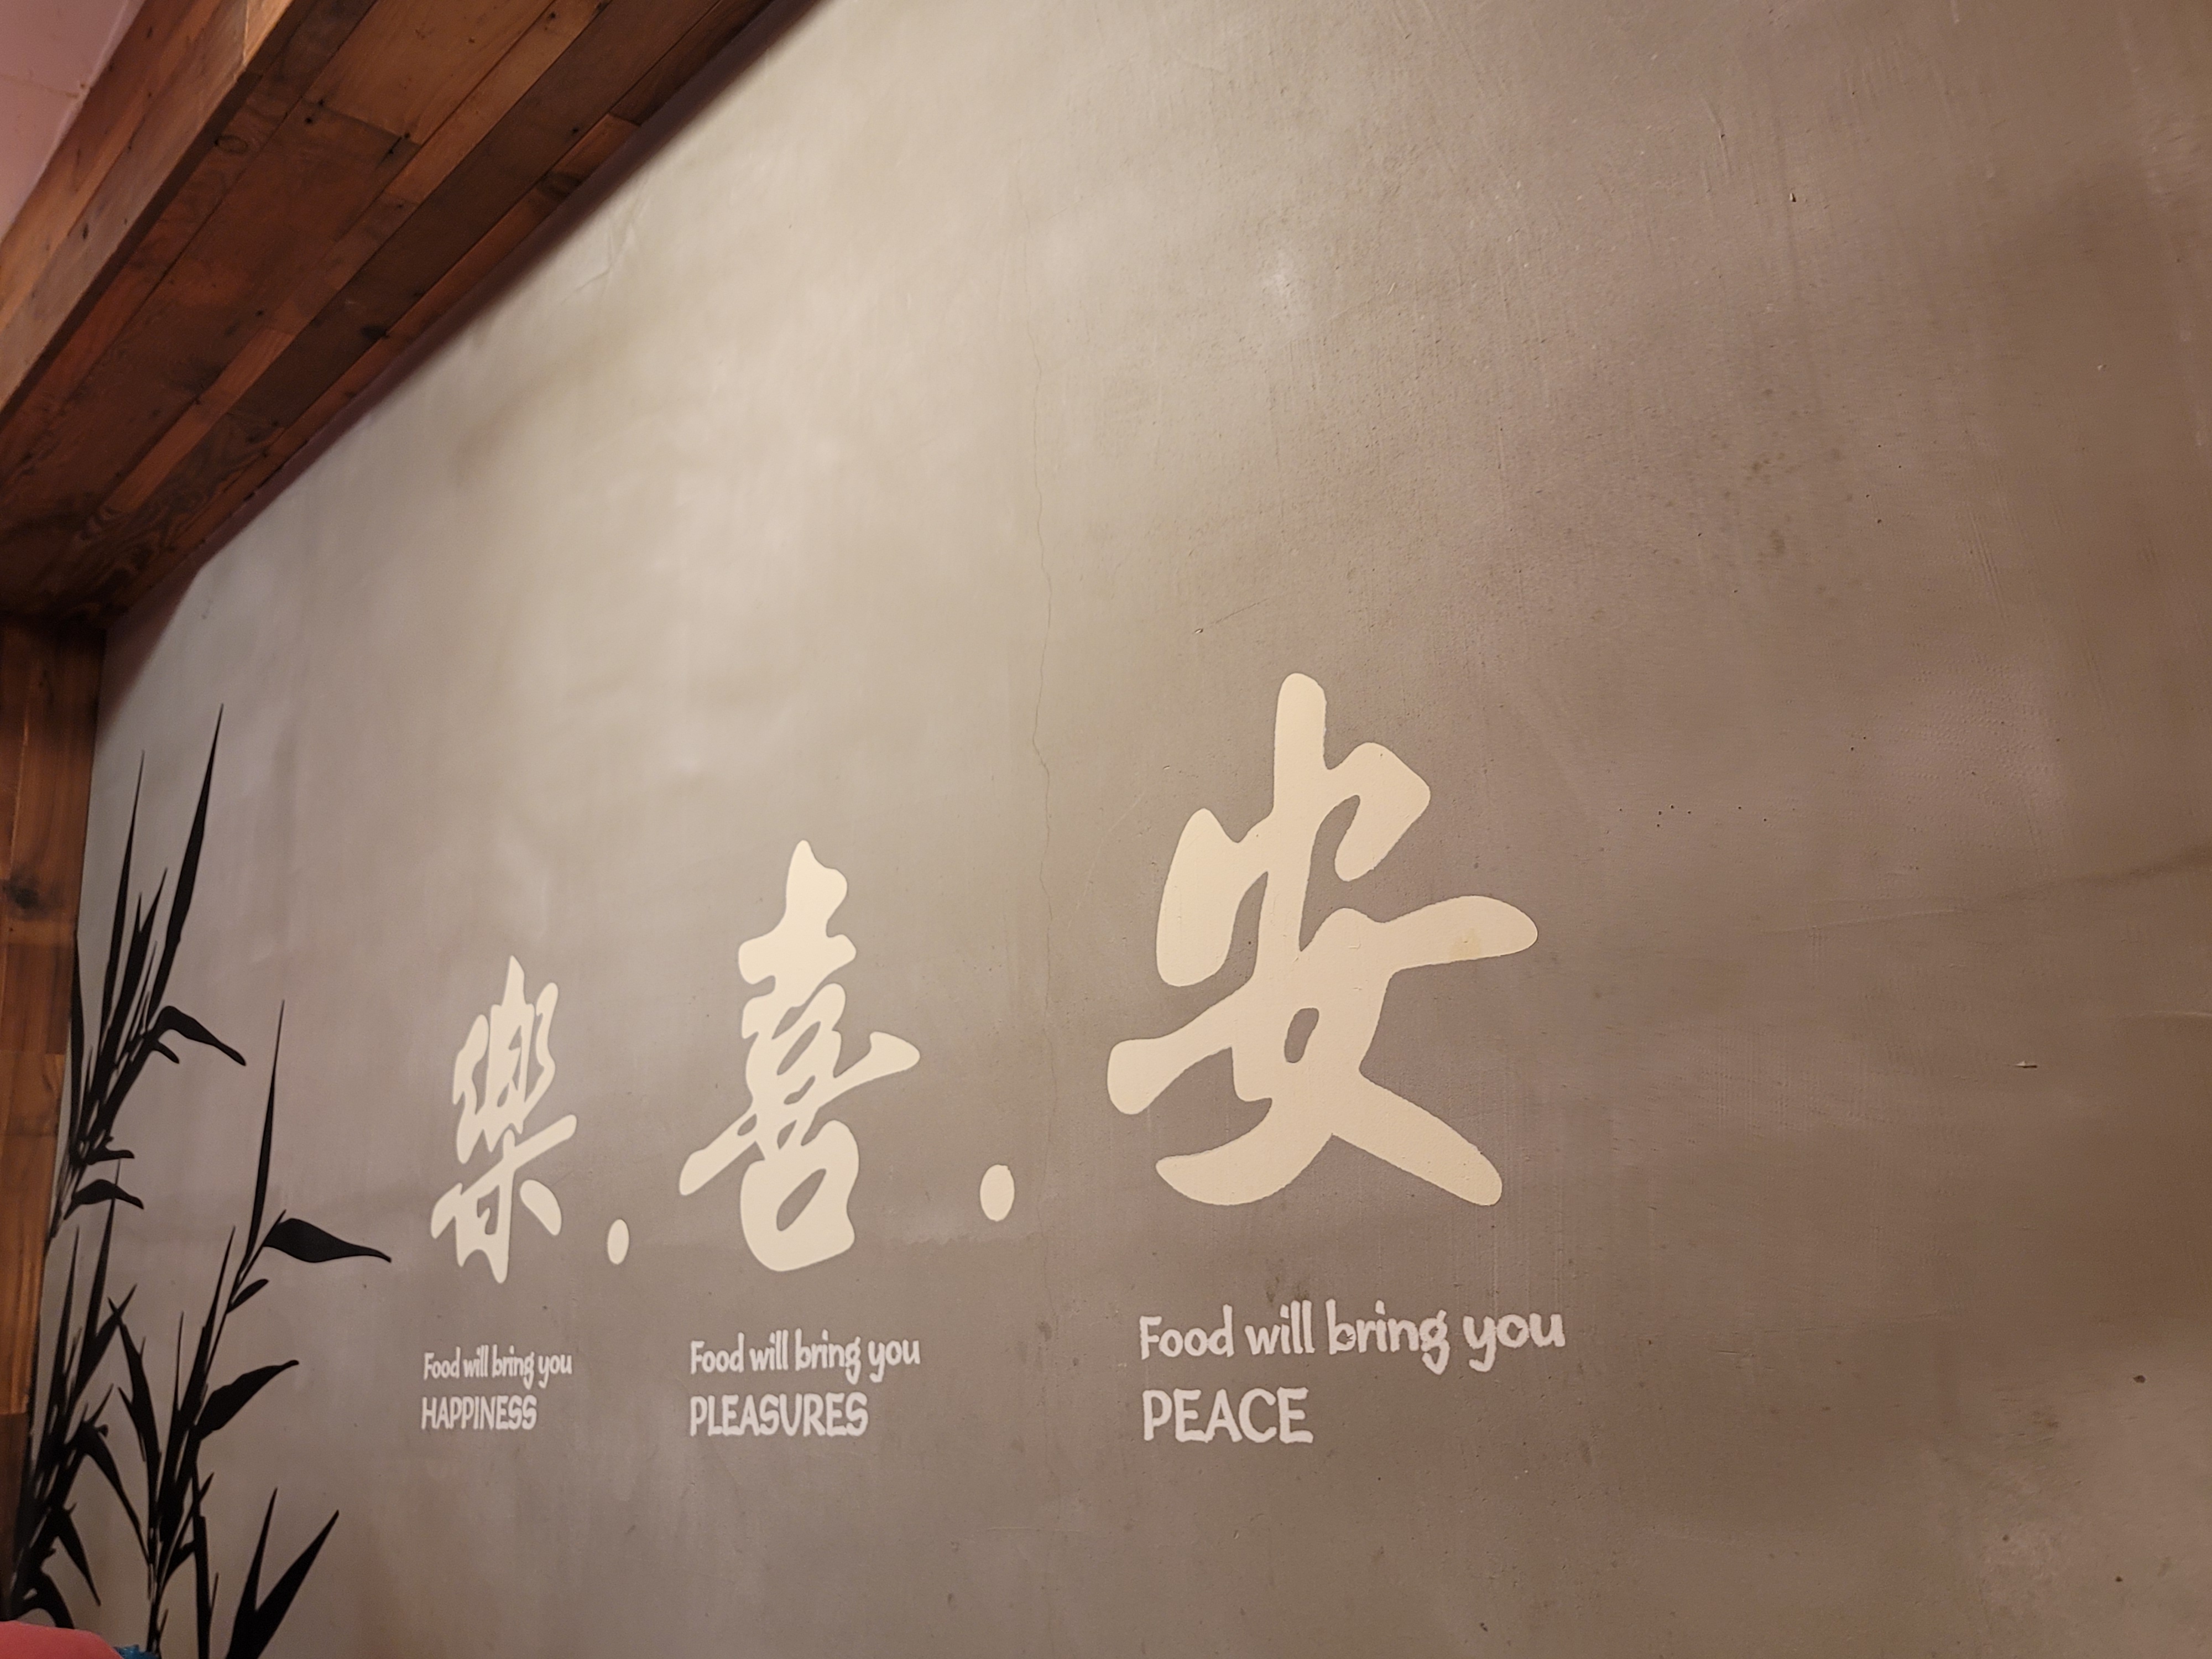 樂.喜.安
Food will bring you
HAPPINESS
Food will bring you
PLEASURES
Food will bring you
PEACE